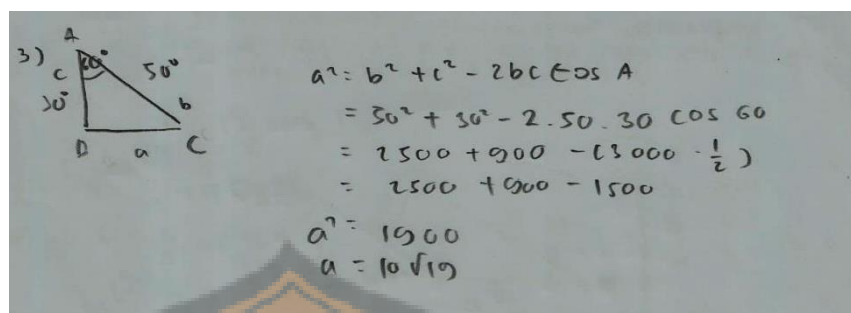 3)
A
60°
c
50°
30°
b
B
a
C
a² = b² + c² - 2bc cos A
= 50² + 30² - 2.50.30 cos 60
= 2500 + 900 - (3000 · 1/2)
= 2500 + 900 - 1500
a² = 1900
a = 10√19